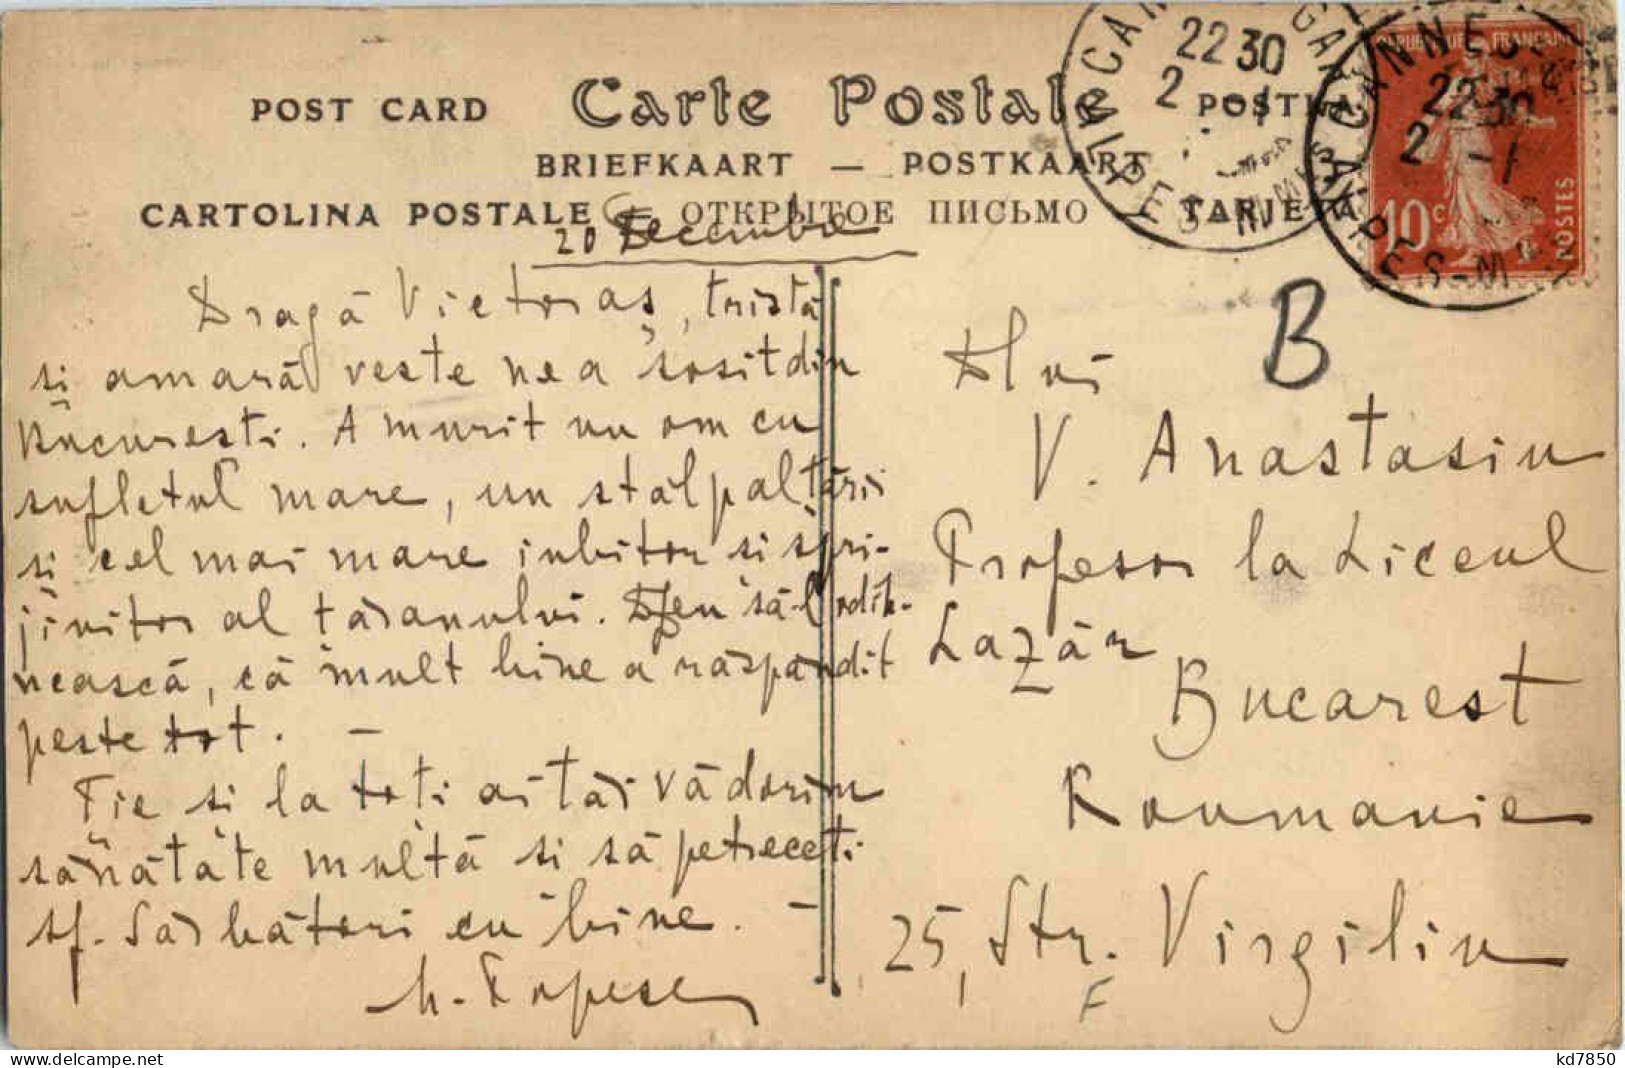 POST CARD Carte Postale
BRIEFKAART — POSTKAART
CARTOLINA POSTALE ОТКРЫТОЕ ПИСЬМО — TARJETA
22 30
2 - 1
ALPES-MMES
CANNES
22 30
2 - 1
ALPES-M
REPUBLIQUE FRANÇAISE
10c
POSTES
20 Decembre
Dragă Victoraș, trista
si amară veste ne a sosit din
București. A murit un om cu
sufletul mare, un stâlp al țării
și cel mai mare iubitor si spri-
jinitor al țăranului. Dzeu să-l odih-
nească, că mult bine a răspandit
peste tot. —
Fie si la toti ai tăi vă dorim
sănătate multă si să petreceti
sf. Sărbători cu bine. —
N. Popescu
B
Dlui
V. Anastasiu
Profesor la Liceul
Lazăr
Bucarest
Roumanie
25, Str. Virgiliu
F
kd7850